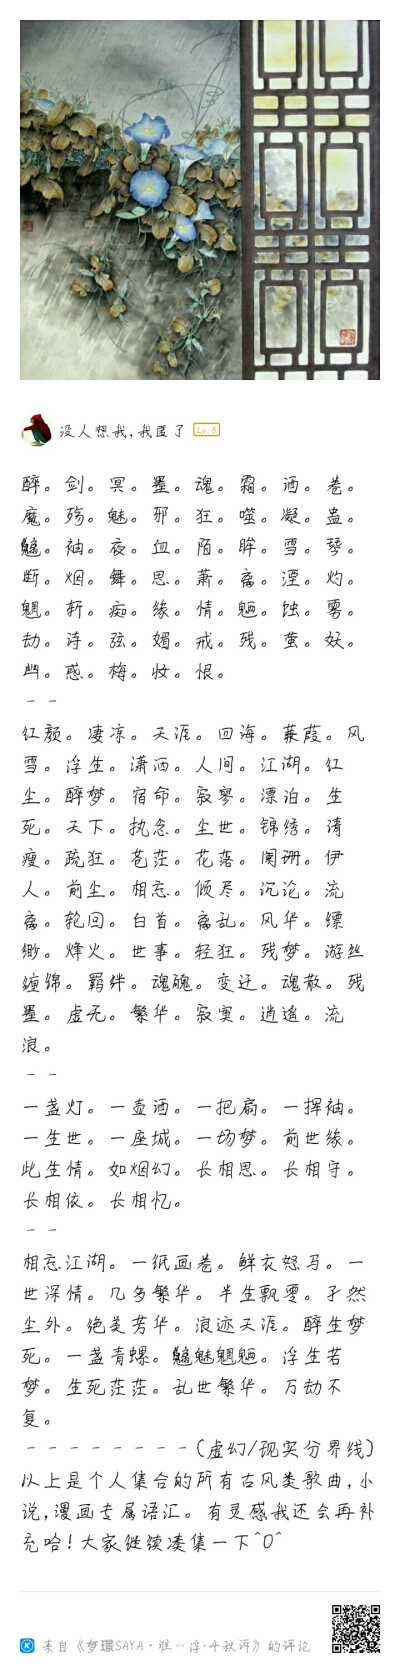 没人想我，我匿了 Lv.5
醉。剑。冥。墨。魂。霜。酒。卷。
魔。殇。魅。邪。狂。噬。凝。蛊。
魑。袖。夜。血。陌。眸。雪。琴。
断。烟。舞。思。萧。离。湮。灼。
魍。斩。痴。缘。情。魉。蚀。雾。
劫。诗。弦。媚。戒。残。萤。妖。
幽。惑。梅。妆。恨。
－－
红颜。凄凉。天涯。四海。蒹葭。风
雪。浮生。潇洒。人间。江湖。红
尘。醉梦。宿命。寂寥。漂泊。生
死。天下。执念。尘世。锦绣。清
瘦。疏狂。苍茫。花落。阑珊。伊
人。前尘。相忘。倾尽。沉沦。流
离。轮回。白首。离乱。风华。缥
缈。烽火。世事。轻狂。残梦。游丝
缠绵。羁绊。魂魄。变迁。魂散。残
墨。虚无。繁华。寂寞。逍遥。流
浪。
－－
一盏灯。一壶酒。一把扇。一挥袖。
一生世。一座城。一场梦。前世缘。
此生情。如烟幻。长相思。长相守。
长相依。长相忆。
－－
相忘江湖。一纸画卷。鲜衣怒马。一
世深情。几多繁华。半生飘零。孑然
尘外。绝美芳华。浪迹天涯。醉生梦
死。一盏青螺。魑魅魍魉。浮生若
梦。生死茫茫。乱世繁华。万劫不
复。
－－－－－－－－(虚幻/现实分界线)
以上是个人集合的所有古风类歌曲，小
说，漫画专属语汇。有灵感我还会再补
充哈！大家继续凑集一下^O^
来自《梦璟SAYA·谁…浮·千叔诉》的评论